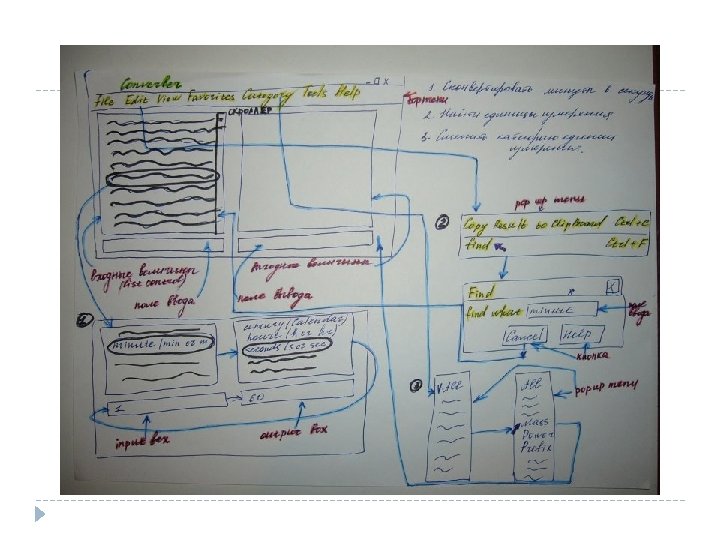 Converter
- □ x
File Edit View Favorites Category Tools Help
топ меню
1. Сконвертировать минуты в секунды
2. Найти единицы измерения
3. категорию единиц измерения.
скроллер
pop up menu
2
Copy Result to Clipboard Ctrl+C
find Ctrl+F
Входные величины
(list control)
поле ввода
выходные величины
поле вывода
Find
x
find what: minute
поле ввода
Cancel
Help
кнопка
1
minute (min or m
century (calendar)
hour (h or hr)
second (s or sec
1
60
input box
output box
3
ALL
ALL
Mass
Power
Prefix
popup menu